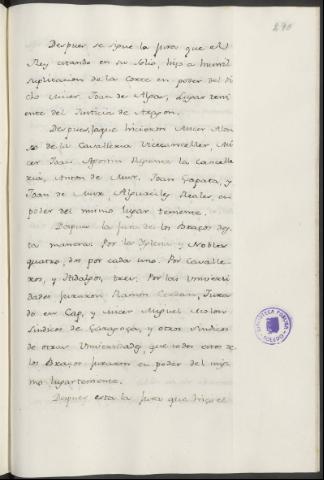 270
Despues se sigue la Jura que el
Rey estando en su Solio, hizo a humil
suplicacion de la Corte en poder del di
cho Micer Joan de Algar, Lugar teni
ente del Justicia de Aragon.
Despues, la que hicieron Micer Alon
so de la Cavalleria Vicecanceller, Mi
cer Joan Agostin Regente la Cancelle
ria, Anton de Mur, Joan Çapata, y
Joan de Mur, Alguaciles Reales, en
poder del mismo lugar teniente.
Despues la Jura de los Braços des
ta manera: Por la Iglesia y Nobles
quatro, dos por cada uno. Por Cavalle
ros, y Hidalgos, tres. Por las Universi
dades juraron Ramon Cerdan, Jura
do en Cap, y Micer Miguel Molon
Sindicos de Çaragoça, y otros Sindicos
de otras Universidades, que todos estos de
los Braços juraron en poder del mis
mo lugarteniente.
Despues esta la Jura que hiço el
BIBLIOTECA PUBLICA
TOLEDO